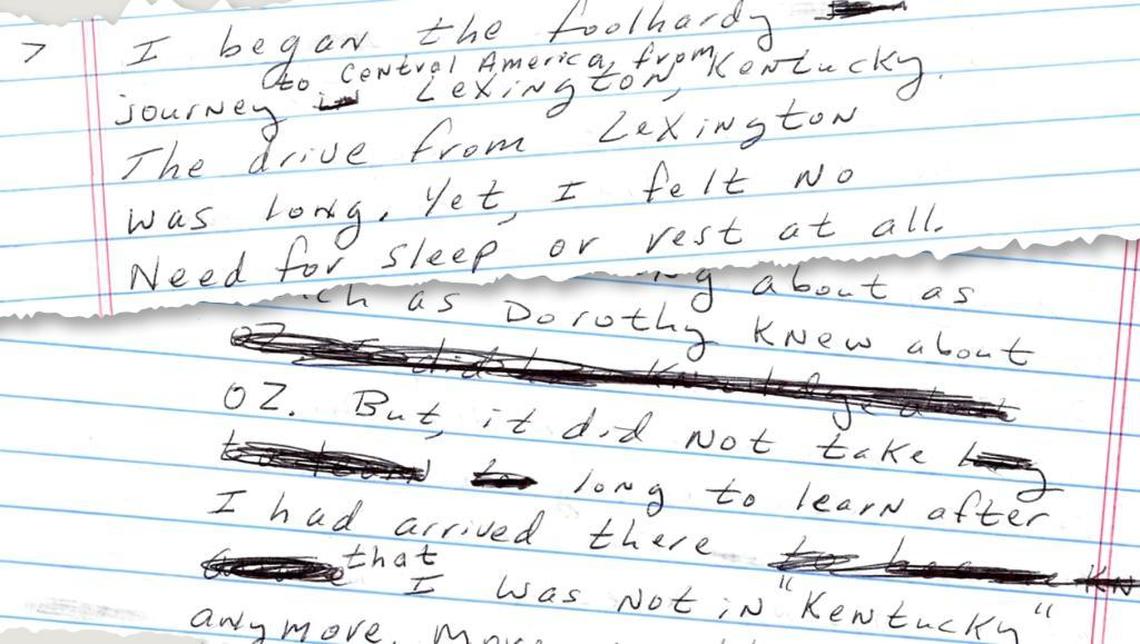 I began the foolhardy
to Central America, from
journey in Lexington, Kentucky.
The drive from Lexington
was long. Yet, I felt no
Need for sleep or rest at all.
about as
as Dorothy knew about
OZ
OZ. But, it did not take long
long to learn after
I had arrived there
that
I was not in "Kentucky"
anymore.